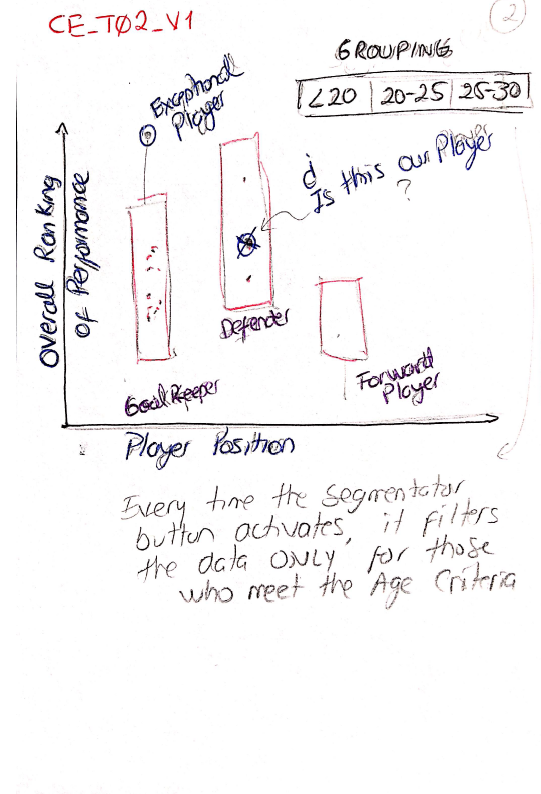 CE_TØ2_V1
2
GROUPING
<20 | 20-25 | 25-30
Exceptional
Player
¿
Is this our Player
?
Overall Ranking
of Performance
Defender
Goal Keeper
Forward
Player
Player Position
Every time the segmentator
button activates, it filters
the data ONLY for those
who meet the Age Criteria